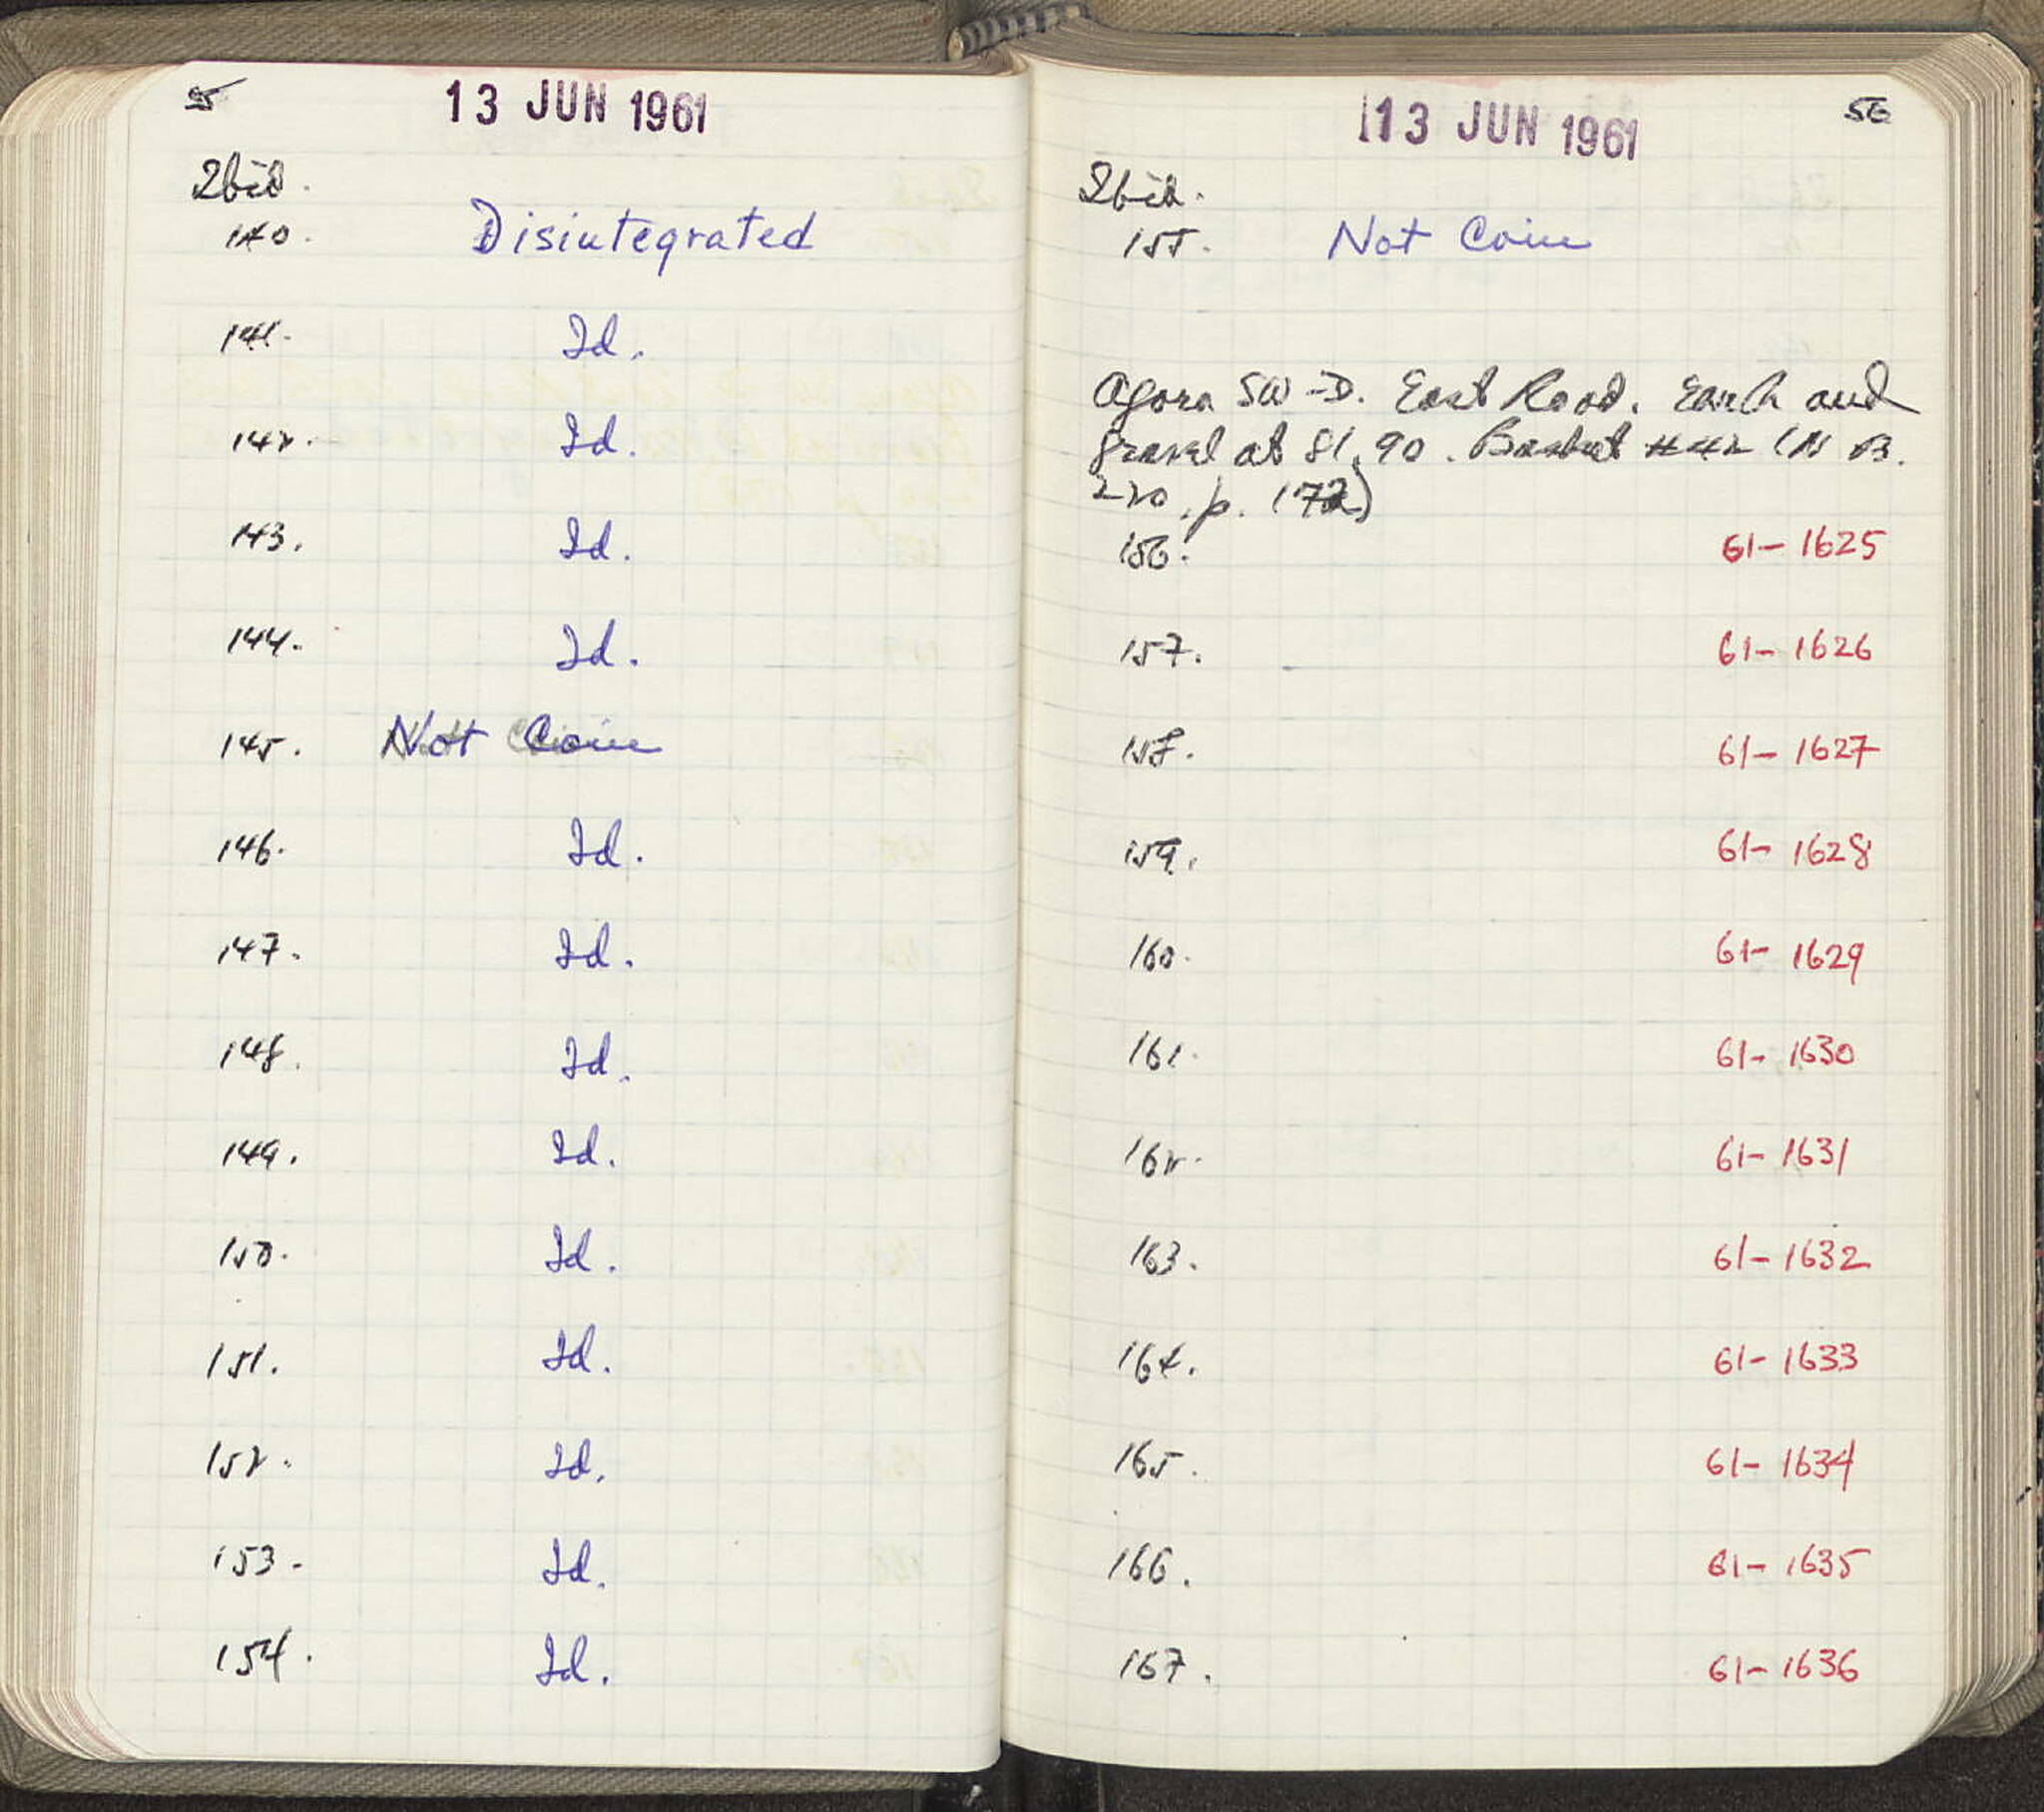 55
13 JUN 1961
Ibid.
140. Disintegrated
141. Id.
142. Id.
143. Id.
144. Id.
145. Not Coin
146. Id.
147. Id.
148. Id.
149. Id.
150. Id.
151. Id.
152. Id.
153. Id.
154. Id.
13 JUN 1961
56
Ibid.
155. Not Coin
Agora SW-D. East Road. Earth and
gravel at 81,90. Basket #42 (N B.
220, p. 172)
156. 61-1625
157. 61-1626
158. 61-1627
159. 61-1628
160. 61-1629
161. 61-1630
162. 61-1631
163. 61-1632
164. 61-1633
165. 61-1634
166. 61-1635
167. 61-1636